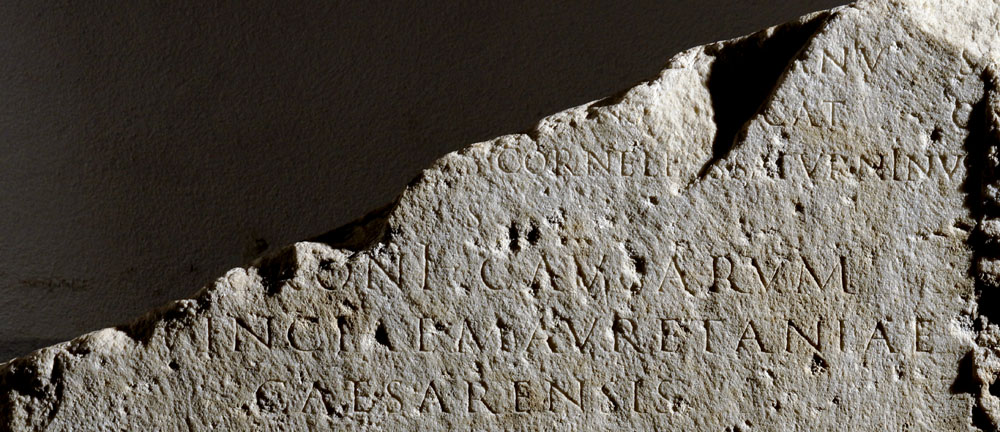 ANV
CAT
CORNELI SATVRNINV
S
ONI CAVSARVM
INCIAE MAVRETANIAE
CAESARENSIS